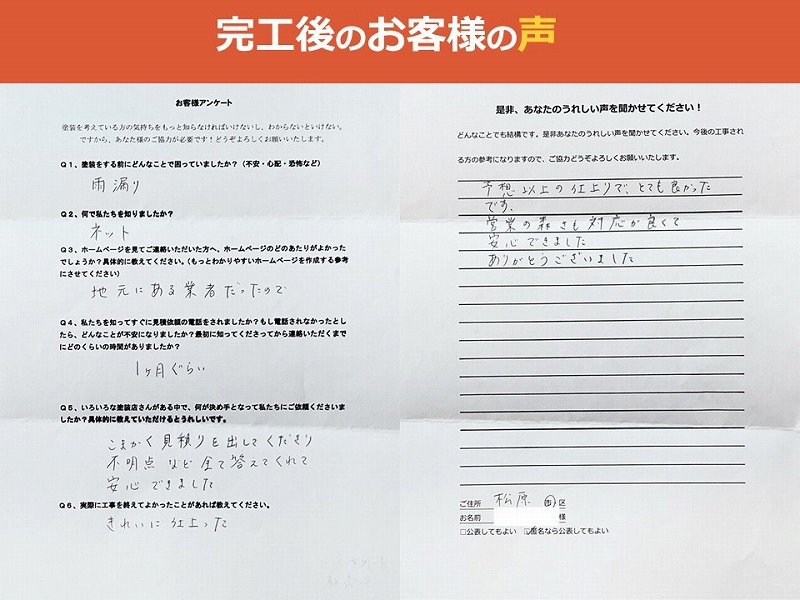 完工後のお客様の声
お客様アンケート
塗装を考えている方の気持ちをもっと知らなければいけないし、わからないといけない。
ですから、あなた様のご協力が必要です！どうぞよろしくお願いいたします。
Ｑ１、塗装をする前にどんなことで困っていましたか？（不安・心配・恐怖など）
雨漏り
Ｑ２、何で私たちを知りましたか？
ネット
Ｑ３、ホームページを見てご連絡いただいた方へ、ホームページのどのあたりがよかった
でしょうか？具体的に教えてください。（もっとわかりやすいホームページを作成する参考
にさせてください）
地元にある業者だったので
Ｑ４、私たちを知ってすぐに見積依頼の電話をされましたか？もし電話されなかったとし
たら、どんなことが不安になりましたか？最初に知ってくださってから連絡いただくまで
にどのくらいの時間がありましたか？
1ヶ月ぐらい
Ｑ５、いろいろな塗装店さんがある中で、何が決め手となって私たちにご依頼くださいま
したか？具体的に教えていただけるとうれしいです。
こまかく見積りを出してくださり
不明点など全て答えてくれて
安心できました
Ｑ６、実際に工事を終えてよかったことがあれば教えてください。
きれいに仕上った
是非、あなたのうれしい声を聞かせてください！
どんなことでも結構です。是非あなたのうれしい声を聞かせてください。今後の工事され
る方の参考になりますので、ご協力どうぞよろしくお願いいたします。
予想以上の仕上りで、とても良かった
です。
営業の森さも対応が良くて
安心できました
ありがとうございました
ご住所 松原 市 区
お名前 様
□公表してもよい ☑匿名なら公表してもよい